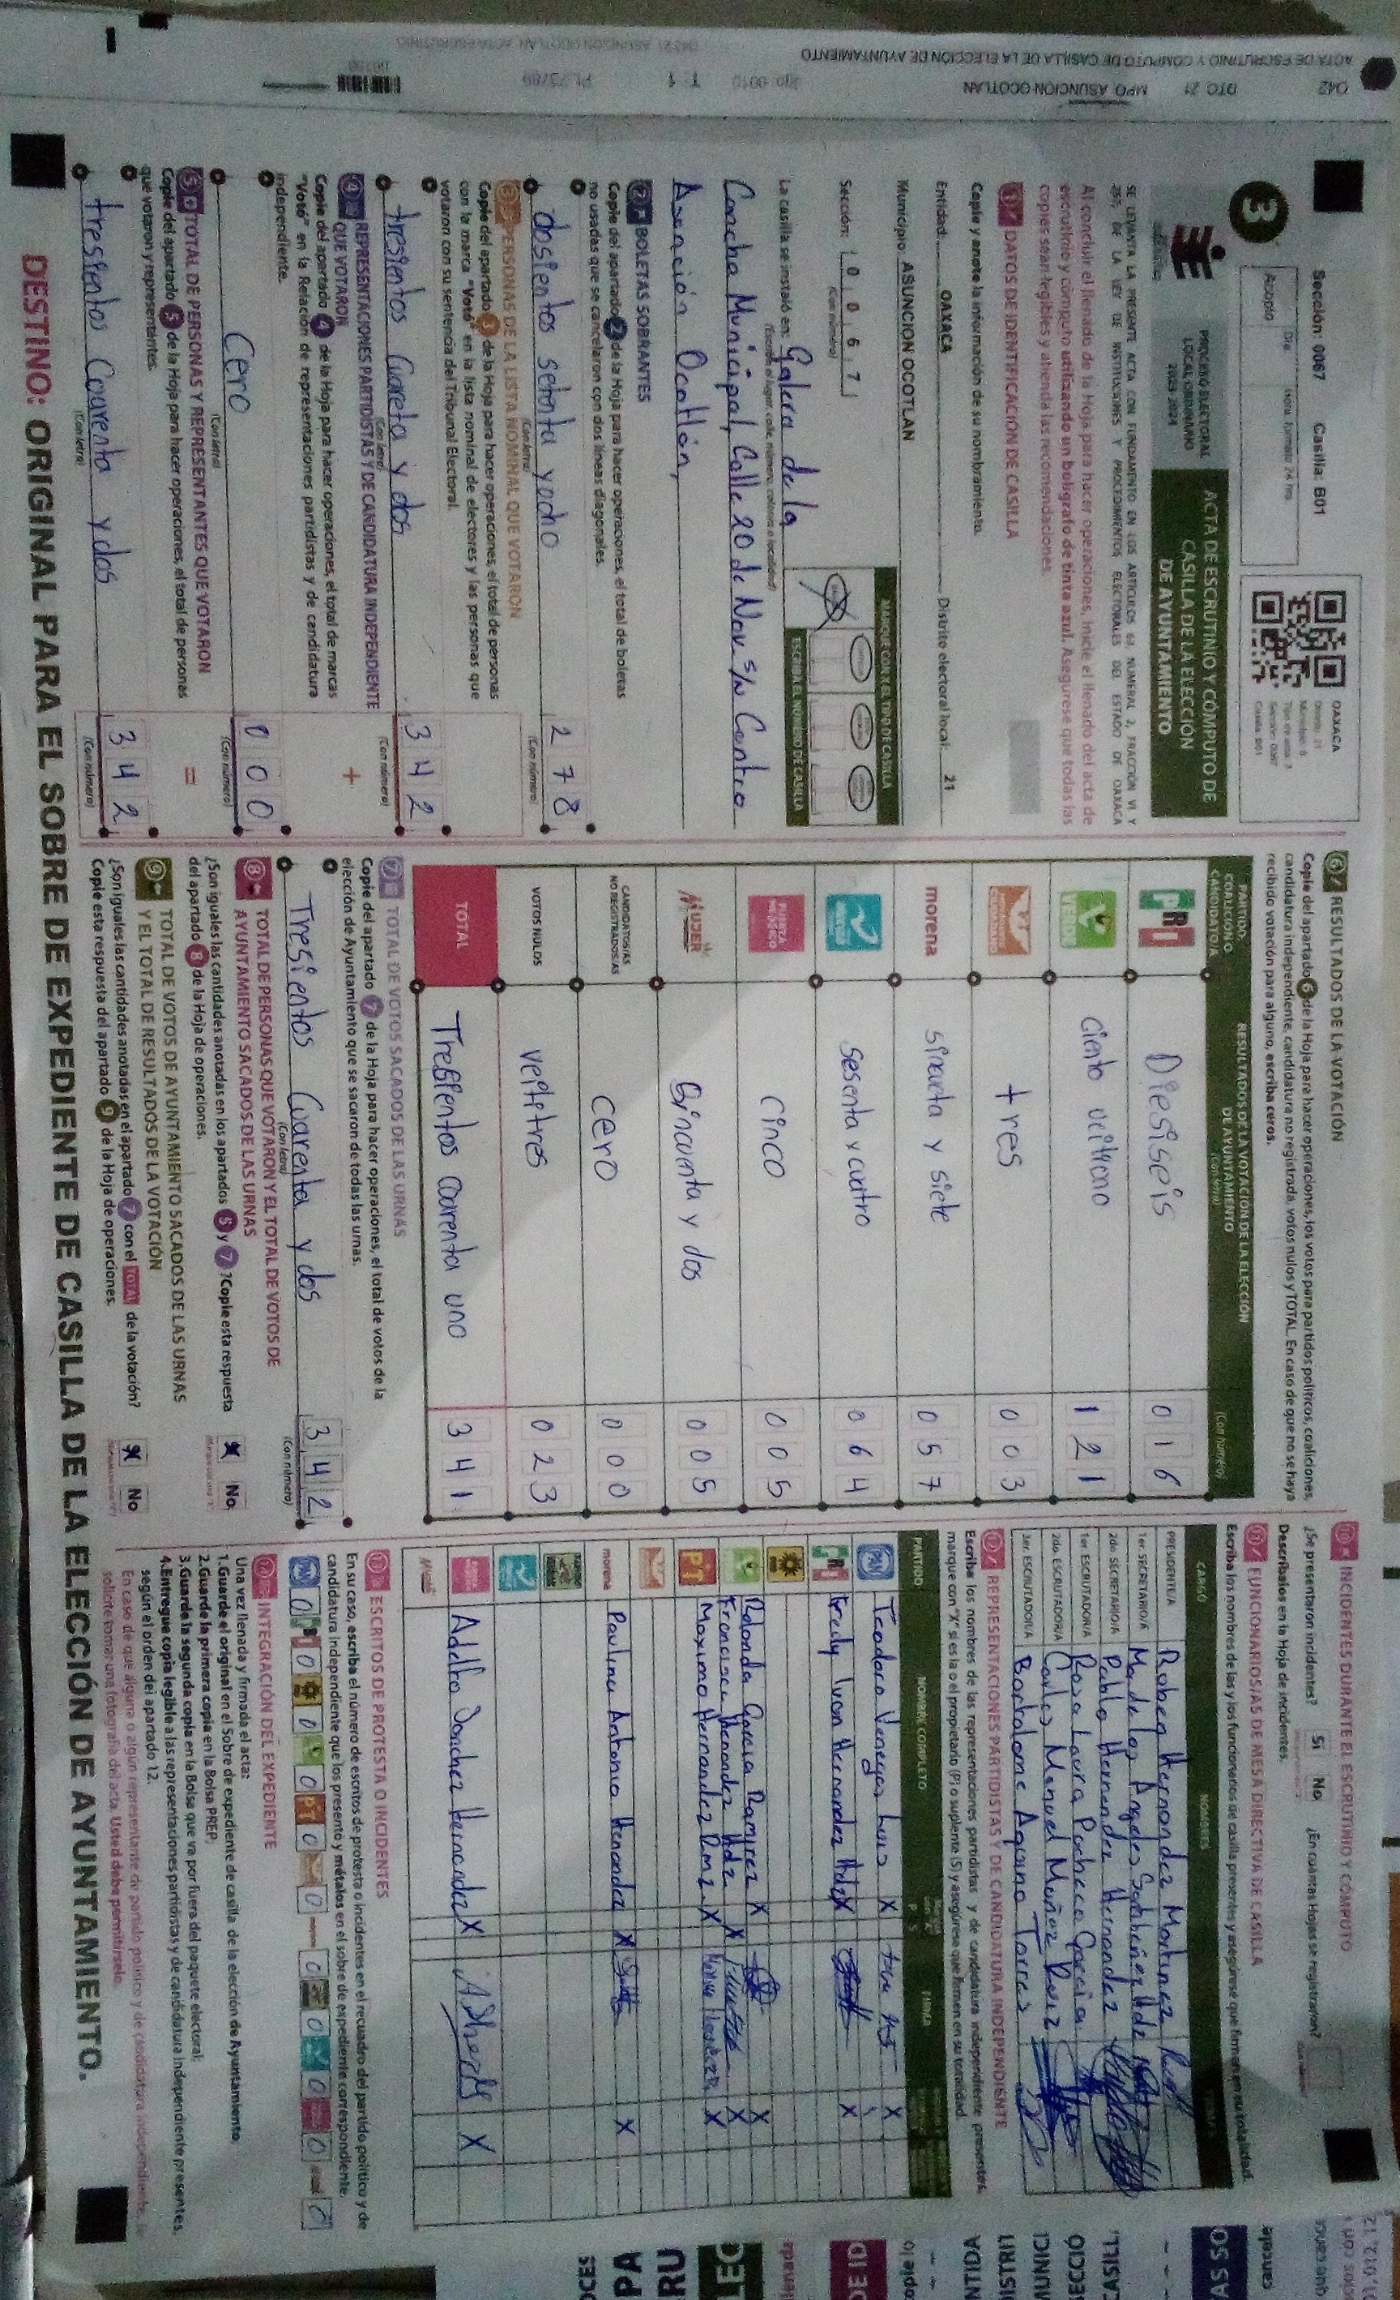 Sección: 0067 Casilla: B01
3
Día Hora: formato 24 hrs
Acopio
OAXACA
PROCESO ELECTORAL
LOCAL ORDINARIO
2023-2024
ACTA DE ESCRUTINIO Y CÓMPUTO DE
CASILLA DE LA ELECCIÓN
DE AYUNTAMIENTO
SE LEVANTA LA PRESENTE ACTA CON FUNDAMENTO EN LOS ARTÍCULOS
DE LA LEY DE INSTITUCIONES Y PROCEDIMIENTOS ELECTORALES DEL ESTADO DE OAXACA
Al concluir el llenado de la Hoja para hacer operaciones, inicie el llenado del acta de
escrutinio y cómputo utilizando un bolígrafo de tinta azul. Asegúrese que todas las
copias sean legibles y atienda las recomendaciones.
1 DATOS DE IDENTIFICACIÓN DE CASILLA
Copie y anote la información de su nombramiento.
Entidad: OAXACA Distrito electoral local: 21
Municipio: ASUNCION OCOTLAN
Sección: 0 0 6 7
(Con número)
MARQUE CON X EL TIPO DE CASILLA
ESCRIBA EL NÚMERO DE CASILLA
La casilla se instaló en: Galera de la
(Escriba el lugar, calle, número, colonia o localidad)
Cancha Municipal, Calle 20 de Nov s/n Centro
Asunción Ocotlán,
2 BOLETAS SOBRANTES
Copie del apartado 2 de la Hoja para hacer operaciones, el total de boletas
no usadas que se cancelaron con dos líneas diagonales.
dosientos setenta y ocho 2 7 8
(Con letra) (Con número)
3 PERSONAS DE LA LISTA NOMINAL QUE VOTARON
Copie del apartado 3 de la Hoja para hacer operaciones, el total de personas
con la marca "Votó" en la lista nominal de electores y las personas que
votaron con su sentencia del Tribunal Electoral.
tresientos Cuareta y dos 3 4 2
(Con letra) (Con número)
4 REPRESENTACIONES PARTIDISTAS Y DE CANDIDATURA INDEPENDIENTE
QUE VOTARON
Copie del apartado 4 de la Hoja para hacer operaciones, el total de marcas
"Votó" en la Relación de representaciones partidistas y de candidatura
independiente.
+
Cero 0 0 0
(Con letra) (Con número)
5 TOTAL DE PERSONAS Y REPRESENTANTES QUE VOTARON
Copie del apartado 5 de la Hoja para hacer operaciones, el total de personas
que votaron y representantes.
=
tresientos Coarenta y dos 3 4 2
(Con letra) (Con número)
6 RESULTADOS DE LA VOTACIÓN
Copie del apartado 6 de la Hoja para hacer operaciones, los votos para partidos políticos, coaliciones,
candidatura independiente, candidatura no registrada, votos nulos y TOTAL. En caso de que no se haya
recibido votación para alguno, escriba ceros.
PARTIDO, COALICIÓN O CANDIDATO/A
RESULTADOS DE LA VOTACIÓN DE LA ELECCIÓN
DE AYUNTAMIENTO
(Con letra) (Con número)
PRI Diesiseis 0 1 6
VERDE Ciento veitiuno 1 2 1
tres 0 0 3
morena sincueta y siete 0 5 7
sesenta y cuatro 0 6 4
FUERZA POR MÉXICO cinco 0 0 5
MUJER Cincuenta y dos 0 0 5
CANDIDATOS/AS NO REGISTRADOS/AS cero 0 0 0
VOTOS NULOS veititres 0 2 3
TOTAL Tresientos coarenta uno 3 4 1
7 TOTAL DE VOTOS SACADOS DE LAS URNAS
Copie del apartado 7 de la Hoja para hacer operaciones, el total de votos de la
elección de Ayuntamiento que se sacaron de todas las urnas.
Tresientos Cuarenta y dos 3 4 2
(Con letra) (Con número)
8 TOTAL DE PERSONAS QUE VOTARON Y EL TOTAL DE VOTOS DE
AYUNTAMIENTO SACADOS DE LAS URNAS
¿Son iguales las cantidades anotadas en los apartados 5 y 7? Copie esta respuesta
del apartado 8 de la Hoja de operaciones.
No
9 TOTAL DE VOTOS DE AYUNTAMIENTO SACADOS DE LAS URNAS
Y EL TOTAL DE RESULTADOS DE LA VOTACIÓN
¿Son iguales las cantidades anotadas en el apartado 7 con el TOTAL de la votación?
Copie esta respuesta del apartado 9 de la Hoja de operaciones.
No
10 INCIDENTES DURANTE EL ESCRUTINIO Y CÓMPUTO
¿Se presentaron incidentes? Sí No ¿En cuántas Hojas se registraron?
Descríbalos en la Hoja de incidentes.
11 FUNCIONARIOS/AS DE MESA DIRECTIVA DE CASILLA
Escriba los nombres de las y los funcionarios de casilla presentes y asegúrese que firmen en su totalidad.
CARGO NOMBRES
PRESIDENTE/A Ruben Hernandez Martinez
1er. SECRETARIO/A Ma de los Angeles
2do. SECRETARIO/A Pablo Hernandez Hernandez
1er. ESCRUTADOR/A Rosa Laura Pacheco Garcia
2do. ESCRUTADOR/A Carlos Manuel Muñoz Ruiz
3er. ESCRUTADOR/A Bartolome Aquino Torres
12 REPRESENTACIONES PARTIDISTAS Y DE CANDIDATURA INDEPENDIENTE
Escriba los nombres de las representaciones partidistas y de candidatura independiente presentes,
marque con "X" si es la o el propietario (P) o suplente (S) y asegúrese que firmen en su totalidad.
PARTIDO NOMBRE COMPLETO P S FIRMA
PAN Teodora Venegas Luis X X
PRI Fredy Ivan Hernandez Hdez X X
Rolando Garcia Ramirez X X
Francisca Hernandez Hdz X X
PT Maximo Hernandez Rmz X X
morena Paulina Antonio Hernandez X X
Adelfo Sanchez Hernandez X X
ESCRITOS DE PROTESTA O INCIDENTES
En su caso, escriba el número de escritos de protesta o incidentes en el recuadro del partido político y de
candidatura independiente que los presentó y métalos en el sobre de expediente correspondiente.
PAN 0 PRI 0 0 0 PT 0 0 0 0 0 0 0
INTEGRACIÓN DEL EXPEDIENTE
Una vez llenada y firmada el acta:
1.Guarde el original en el Sobre de expediente de casilla de la elección de Ayuntamiento;
2.Guarde la primera copia en la Bolsa PREP;
3.Guarde la segunda copia en la Bolsa que va por fuera del paquete electoral;
4.Entregue copia legible a las representaciones partidistas y de candidatura independiente presentes,
según el orden del apartado 12.
En caso de que alguna o algún representante de partido político y de candidatura independiente, le
solicite tomar una fotografía del acta. Usted debe permitírselo.
DESTINO: ORIGINAL PARA EL SOBRE DE EXPEDIENTE DE CASILLA DE LA ELECCIÓN DE AYUNTAMIENTO.
042 DTO. 21 MPO. ASUNCION OCOTLAN
ACTA DE ESCRUTINIO Y CÓMPUTO DE CASILLA DE LA ELECCIÓN DE AYUNTAMIENTO